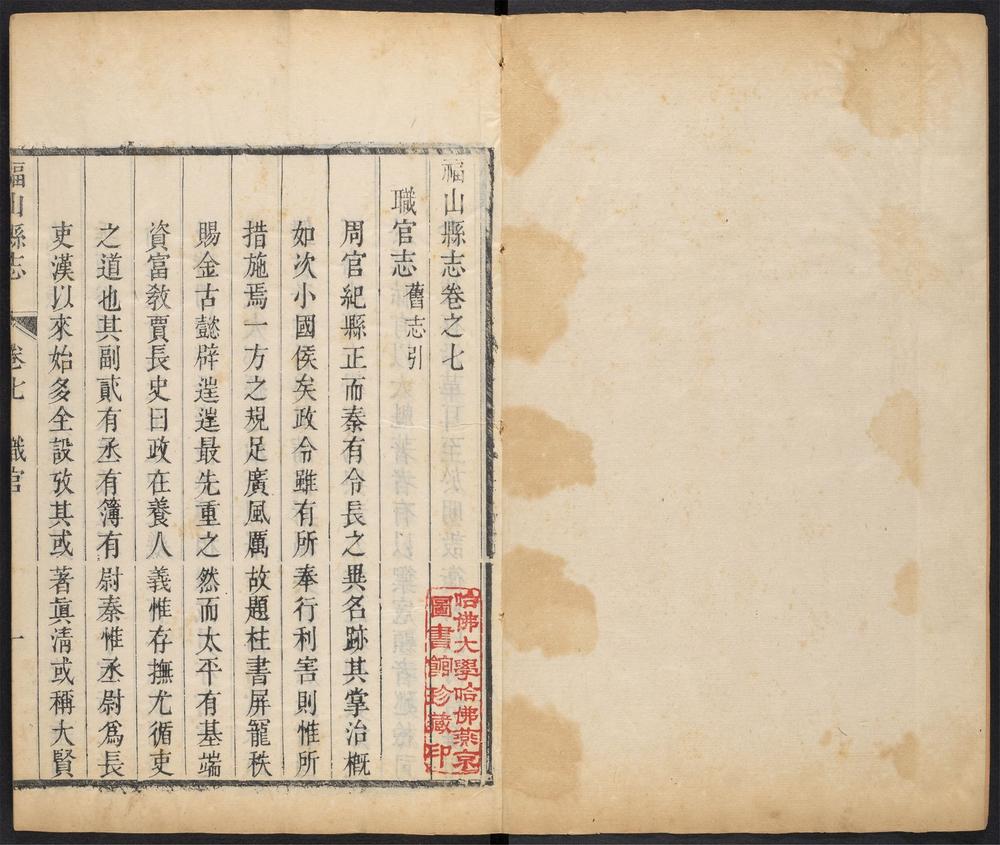 福山縣志卷之七
職官志 舊志引
周官紀縣正而秦有令長之異名跡其掌治槪
如次小國侯矣政令雖有所奉行利害則惟所
措施焉一方之規足廣風厲故題柱書屏寵秩
賜金古懿辟遑遑最先重之然而太平有基端
資富敎賈長史曰政在養人義惟存撫尤循吏
之道也其副貳有丞有簿有尉秦惟丞尉爲長
吏漢以來始多全設攷其或著眞淸或稱大賢
福山縣志
卷七 職官
一
哈佛大學哈佛燕京
圖書館珍藏印